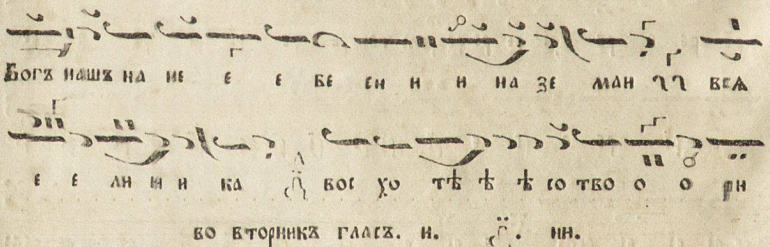 Богъ нашъ на не е е бе си и и на зе мли и и вся
е е ли ки и ка вос хо тѣ ѣ ѣ со тво о о ри
во вторникъ гласъ. и. ни.